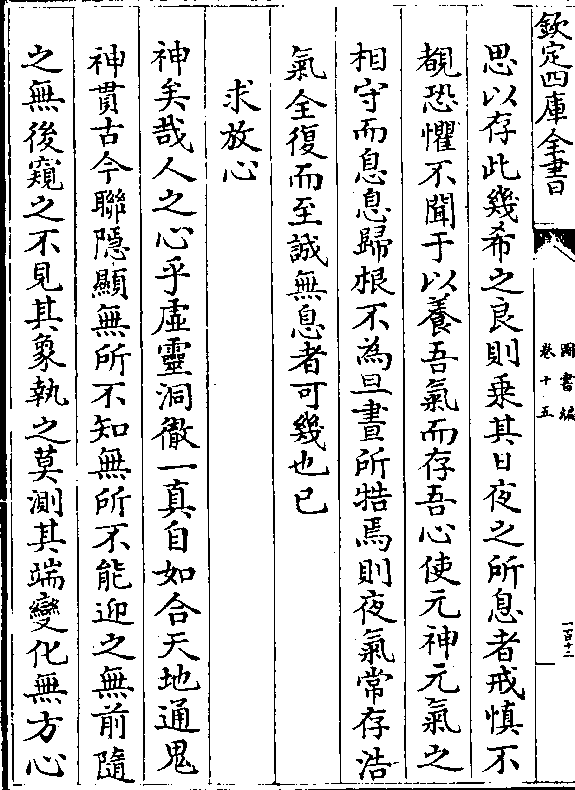 欽定四庫全書
圖書編
卷十五
一百十二
思以存此幾希之良則乗其日夜之所息者戒慎不
覩恐懼不聞于以養吾氣而存吾心使元神元氣之
相守而息息歸根不為旦晝所牿焉則夜氣常存浩
氣全復而至誠無息者可幾也已
求放心
神矣哉人之心乎虛靈洞徹一真自如合天地通鬼
神貫古今聯隱顯無所不知無所不能迎之無前隨
之無後窺之不見其象執之莫測其端變化無方心